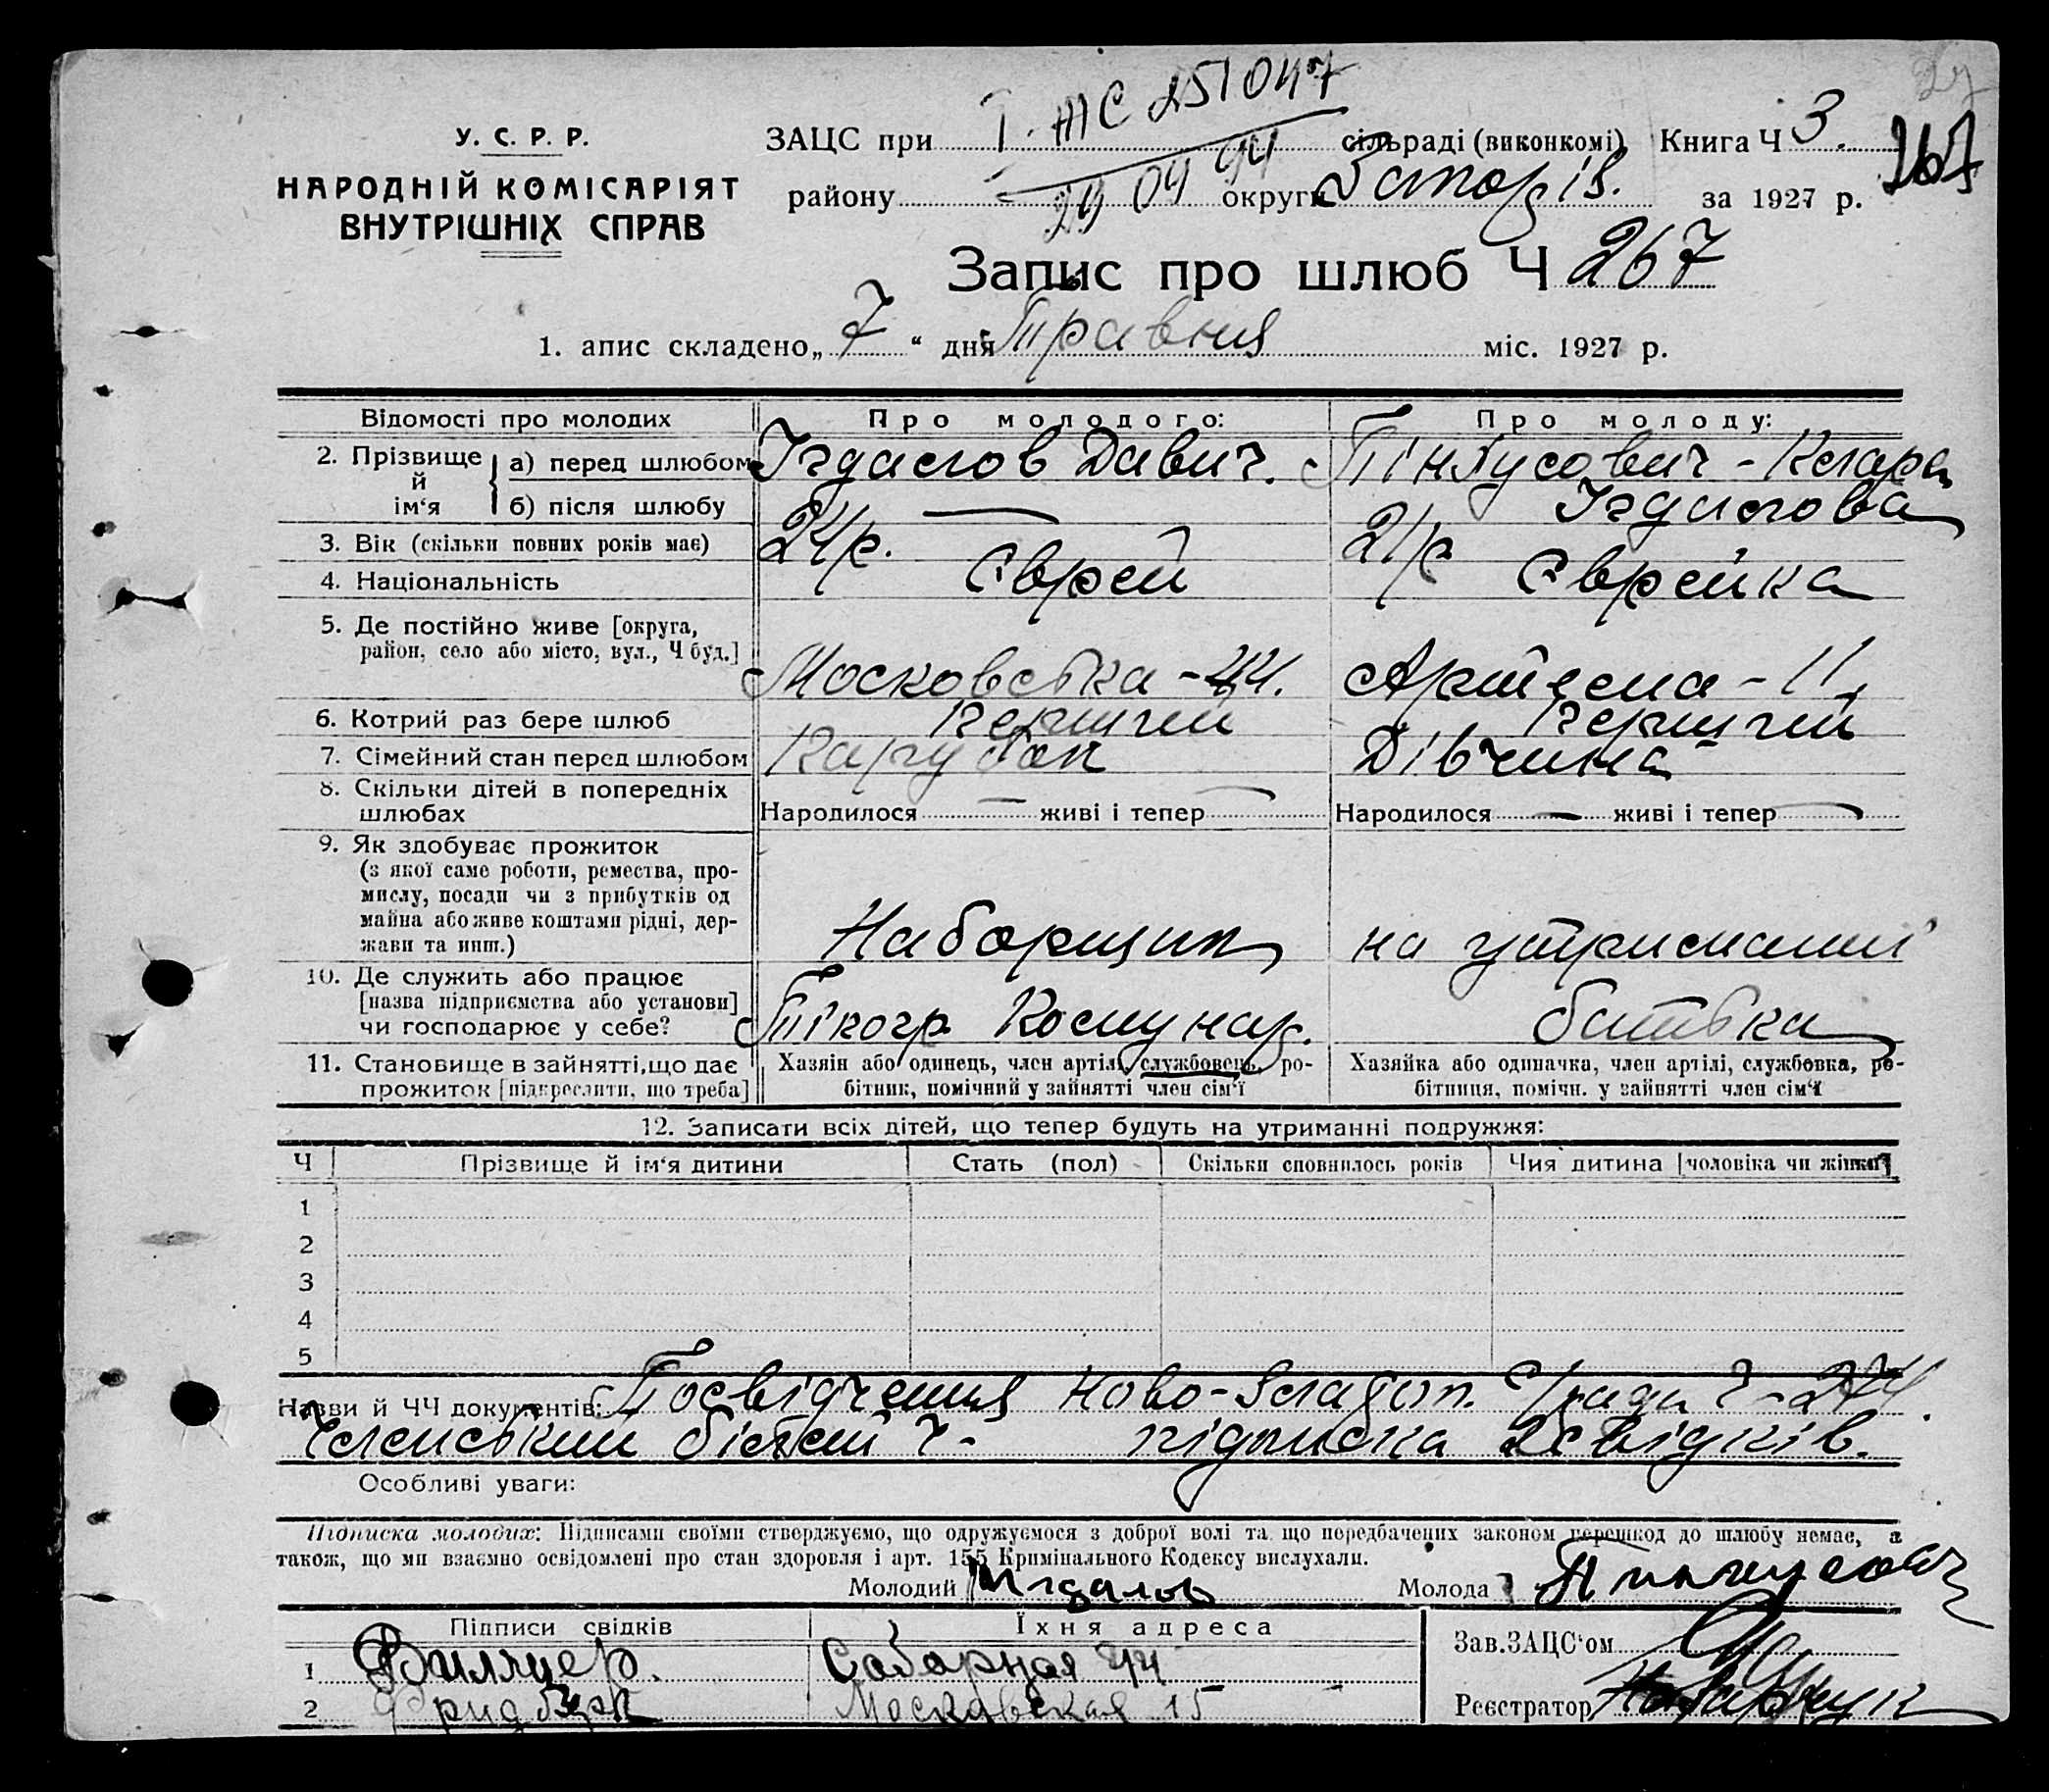 27
У. С. Р. Р.
НАРОДНІЙ КОМІСАРІЯТ
ВНУТРІШНІХ СПРАВ
ЗАЦС при І-ЖС 251047 сільраді (виконкомі) Книга Ч 3.
267
району 29 04 94 округи Запоріз. за 1927 р.
Запис про шлюб Ч 267
1. апис складено „ 7 “ дня Травня міс. 1927 р.
Відомості про молодих Про молодого: Про молоду:
2. Прізвище й ім‘я
а) перед шлюбом Ігдалов Давид. Пінхусович - Клара
б) після шлюбу — Ігдалова
3. Вік (скільки повних років має) 24 р. 21 р
4. Національність Єврей Єврейка
5. Де постійно живе [округа,
район, село або місто, вул., Ч буд.] Московська - 44. Артема - 11
6. Котрий раз бере шлюб перший перший
7. Сімейний стан перед шлюбом Парубок Дівчина
8. Скільки дітей в попередніх
шлюбах Народилося — живі і тепер — Народилося — живі і тепер —
9. Як здобуває прожиток
(з якої саме роботи, ремества, про-
мислу, посади чи з прибутків од
майна або живе коштами рідні, дер-
жави та инш.) Наборщик на утриманні
10. Де служить або працює
[назва підприємства або установи]
чи господарює у себе? Тіпогр Комунар. батька
11. Становище в зайнятті, що дає
прожиток [підкреслити, що треба]
Хазяін або одинець, член артілі, службовець, ро-
бітник, помічний у зайнятті член сім‘ї
Хазяйка або одиначка, член артілі, службовка, ро-
бітниця, помічн. у зайнятті член сім‘ї
12. Записати всіх дітей, що тепер будуть на утриманні подружжя:
Ч Прізвище й ім‘я дитини Стать (пол) Скільки сповнилось років Чия дитина [чоловіка чи жінки]
1
2
3
4
5
Назви й ЧЧ документів: Посвідчення Ново-Златоп. С/ради Ч-274.
Членський білет Ч - підписка 2 свідків.
Особливі уваги:
Підписка молодих: Підписами своїми стверджуємо, що одружуємося з доброї волі та що передбачених законом перешкод до шлюбу немає, а
також, що ми взаємно освідомлені про стан здоровля і арт. 155 Кримінального Кодексу вислухали.
Молодий Игдалов Молода Пинхусович
Підписи свідків Їхня адреса
Зав. ЗАЦС‘ом
1 Соборная 44
2 Фридберг Московская 15
Реєстратор